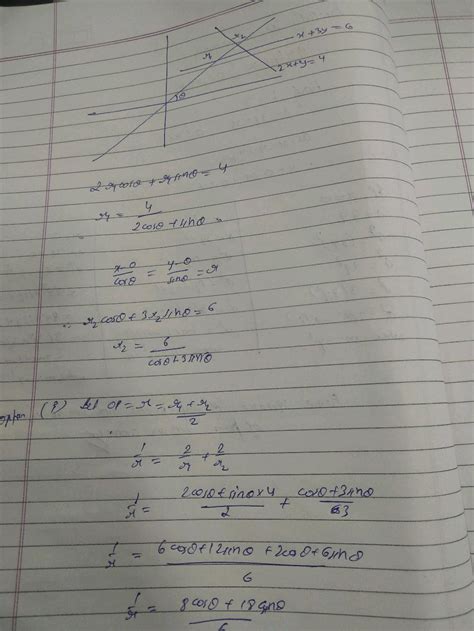 r₂
x + 3y = 6
r₁
2x+y=4
θ
2r₁cosθ + r₁sinθ = 4
r₁ = 4 / (2cosθ + sinθ) =
(x-0)/cosθ = (y-0)/sinθ = r
∴ r₂cosθ + 3r₂sinθ = 6
r₂ = 6 / (cosθ+3sinθ)
(P) let OP = r = (r₁ + r₂)/2
1/r = 2/r₁ + 2/r₂
1/r = (2cosθ + sinθ×4)/2 + (cosθ+3sinθ)/3
1/r = (6cosθ + 12sinθ + 2cosθ + 6sinθ)/6
1/r = (8cosθ + 18sinθ)/6